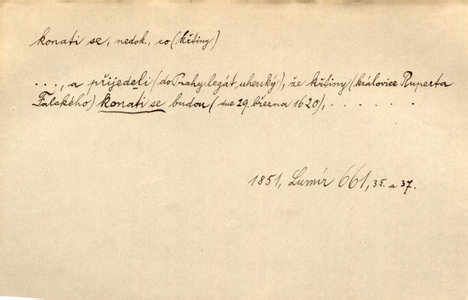 konati se, nedok., co (křtiny)
. . ., a přijedeli (do Prahy legát uherský), že křtiny (královice Ruperta
Falckého) konati se budou (dne 29. března 1620), . . . . . . .
1851, Lumír 661, 35. a 37.